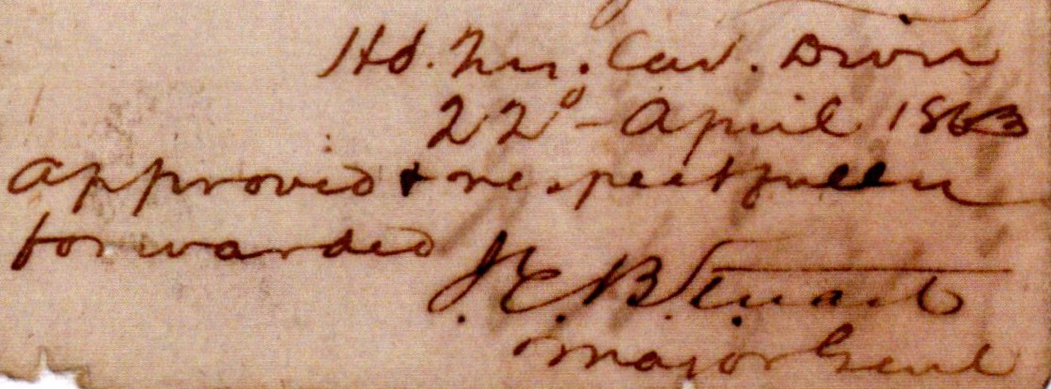 Hd. Qrs. Cav. Divn
22d - April 1863
Approved & respectfully
forwarded
J. E. B. Stuart
Major Genl